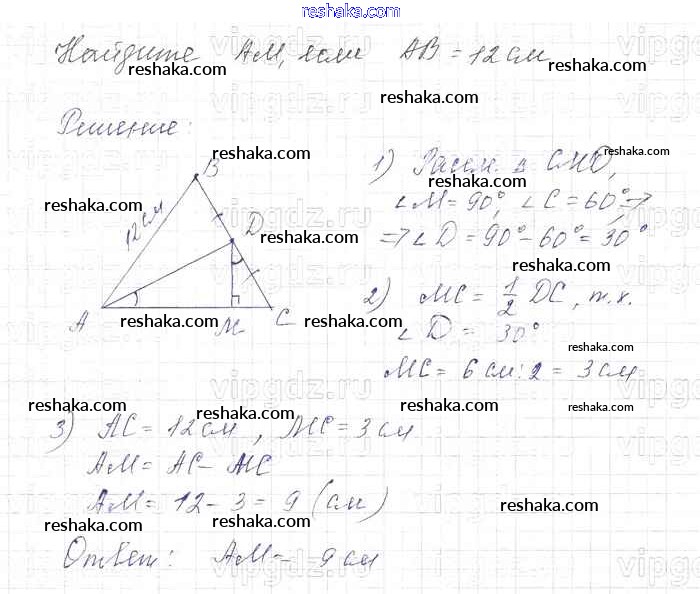 reshaka.com
Найдите AM, если AB = 12 см
reshaka.com
reshaka.com
reshaka.com
Решение:
reshaka.com
B
1) Рассм. Δ CMD,
reshaka.com
∠M = 90°, ∠C = 60°, ⇒
reshaka.com
12 см
D
reshaka.com
⇒ ∠D = 90° - 60° = 30°
2) MC = 1/2 DC, т.к.
A
M
C
reshaka.com
reshaka.com
∠D = 30°
reshaka.com
MC = 6 см : 2 = 3 см
reshaka.com
reshaka.com
reshaka.com
reshaka.com
3) AC = 12 см, MC = 3 см
reshaka.com
AM = AC - MC
AM = 12 - 3 = 9 (см)
reshaka.com
reshaka.com
reshaka.com
Ответ: AM = 9 см